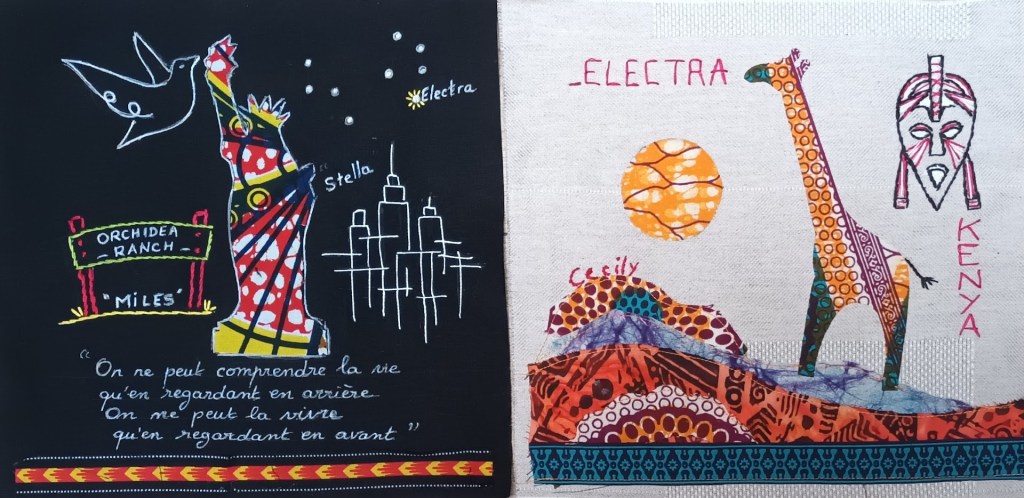 Electra
Stella
ORCHIDEA
RANCH
"MILES"
"On ne peut comprendre la vie
qu'en regardant en arrière
On ne peut la vivre
qu'en regardant en avant"
_ELECTRA
Cecily
KENYA